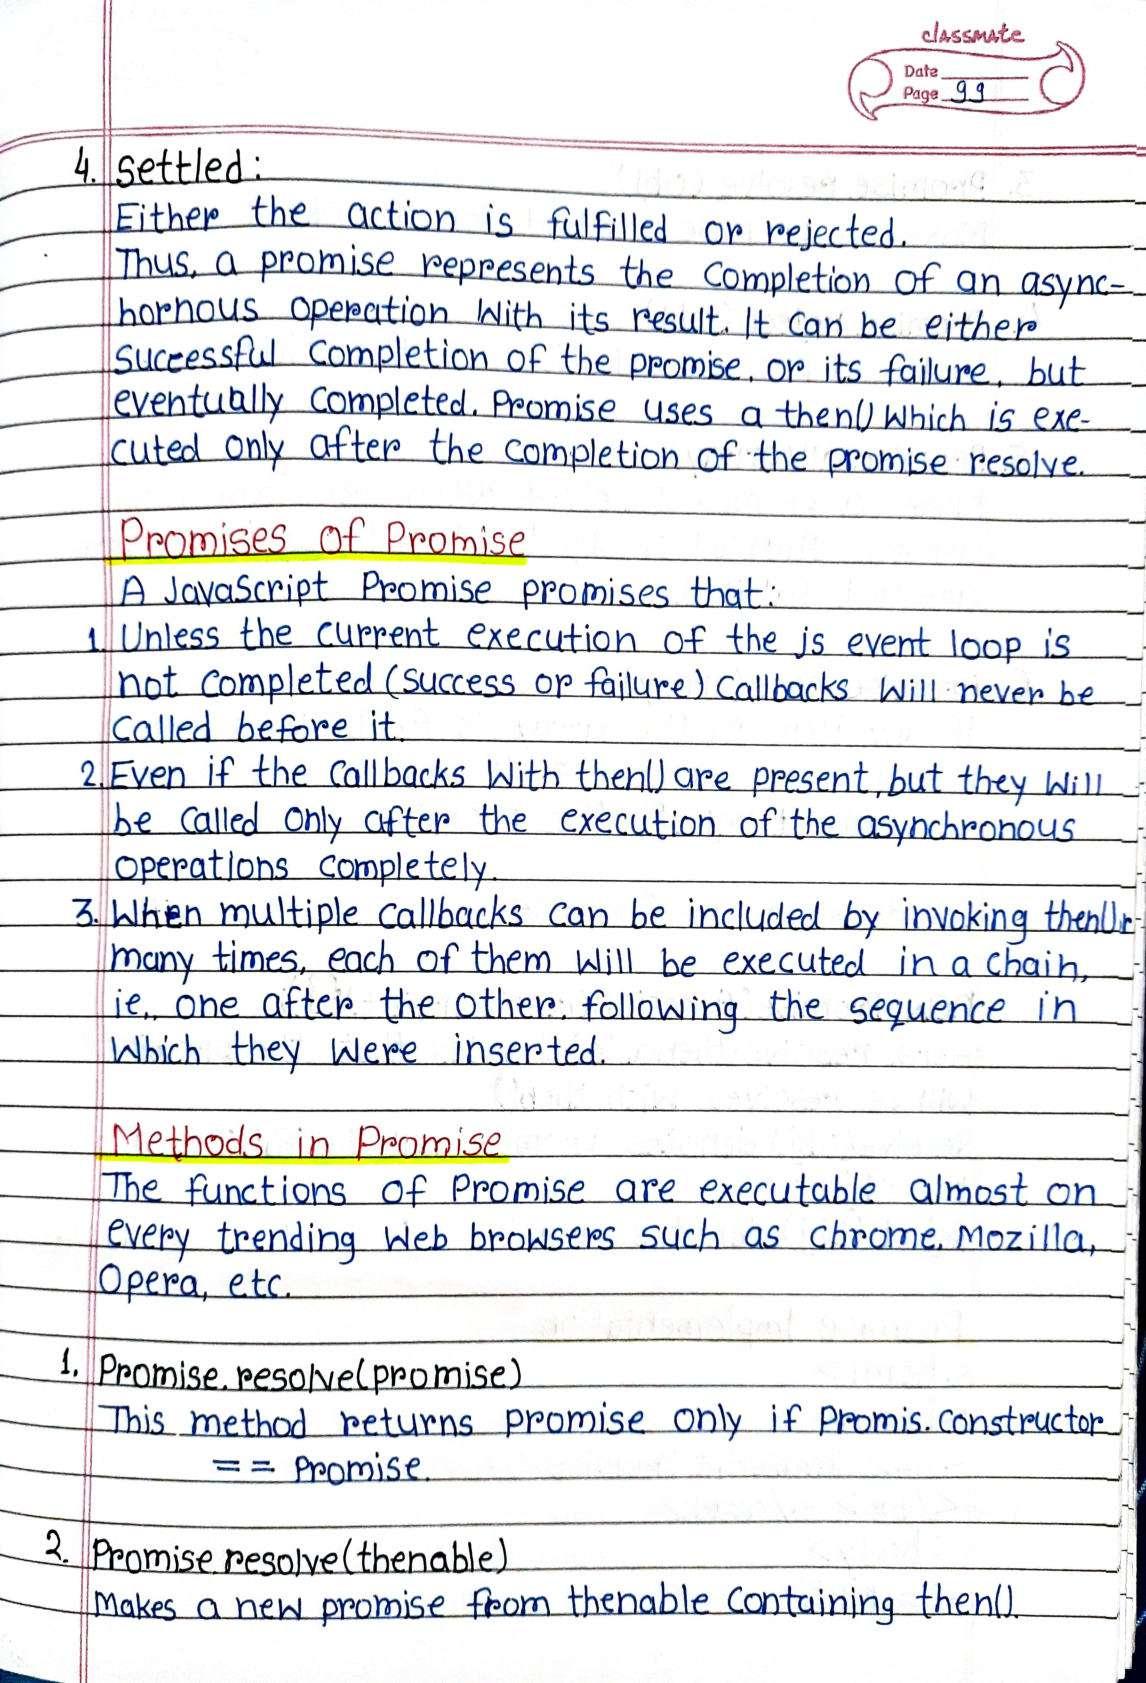 classmate
Date
Page 99
4. Settled:
Either the action is fulfilled or rejected.
Thus, a promise represents the completion of an async-
hornous operation with its result. It can be either
successful completion of the promise, or its failure, but
eventually completed. Promise uses a then() which is exe-
cuted only after the completion of the promise resolve.
Promises of Promise
A JavaScript Promise promises that:
1. Unless the current execution of the js event loop is
not completed (success or failure) callbacks will never be
called before it.
2. Even if the callbacks with then() are present, but they will
be called only after the execution of the asynchronous
operations completely.
3. When multiple callbacks can be included by invoking then()
many times, each of them will be executed in a chain,
ie., one after the other, following the sequence in
which they were inserted.
Methods in Promise
The functions of Promise are executable almost on
every trending web browsers such as chrome, Mozilla,
Opera, etc.
1. Promise.resolve(promise)
This method returns promise only if Promis.constructor
== Promise.
2. Promise.resolve(thenable)
Makes a new promise from thenable containing then().